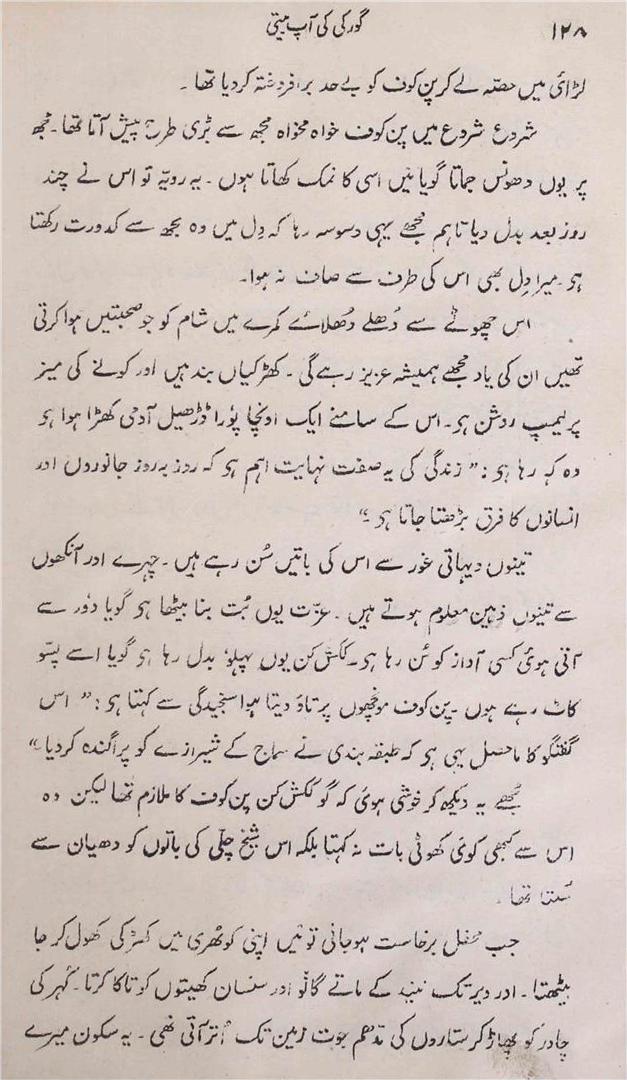 ۱۲۸ گورکی کی آپ بیتی
لڑائی میں حصّہ لے کر پن کوف کو بے حد برافروختہ کر دیا تھا ۔
شروع شروع میں پن کوف خواہ مخواہ مجھ سے بُری طرح پیش آتا تھا ۔ مجھ
پر یوں دھونس جماتا گویا میَں اسی کا نمک کھاتا ہوں ۔ یہ رویّہ تو اس نے چند
روز بعد بدل دیا تاہم مجھے یہی وسوسہ رہا کہ دِل میں وہ مجھ سے کدورت رکھتا
ہو ۔ میرا دِل بھی اس کی طرف سے صاف نہ ہوا ۔
اس چھوٹے سے دُھلے دُھلائے کمرے میں شام کو جو صحبتیں ہوا کرتی
تھیں ان کی یاد مجھے ہمیشہ عزیز رہے گی ۔ کھڑکیاں بند ہیں اور کونے کی میز
پر لیمپ روشن ہو ۔ اس کے سامنے ایک اونچا پورا ڈڑھیل آدمی کھڑا ہوا ہو
وہ کہہ رہا ہو : " زندگی کی یہ صفت نہایت اہم ہو کہ روز بہ روز جانوروں اور
انسانوں کا فرق بڑھتا جاتا ہو ۔"
تینوں دیہاتی غور سے اس کی باتیں سُن رہے ہیں ۔ چہرے اور آنکھوں
سے تینوں ذہین معلوم ہوتے ہیں ۔ عزّت یوں بُت بنا بیٹھا ہو گویا دور سے
آتی ہوئی کسی آواز کو سُن رہا ہو ۔ ککش کن یوں پہلو بدل رہا ہو گویا اسے پسّو
کاٹ رہے ہوں ۔ پن کوف مونچھوں پر تاؤ دیتا ہوا سنجیدگی سے کہتا ہو : " اس
گفتگو کا ماحصل یہی ہو کہ طبقہ بندی نے سماج کے شیرازے کو پراگندہ کر دیا "
مجھے یہ دیکھ کر خوشی ہوئی کہ گو ککش کن پن کوف کا ملازم تھا لیکن وہ
اس سے کبھی کوئی کھوٹی بات نہ کہتا بلکہ اس شیخ چلّی کی باتوں کو دھیان سے
سُنتا تھا ۔
جب محفل برخاست ہو جاتی تو میَں اپنی کوٹھری میں کھڑکی کھول کر جا
بیٹھتا ۔ اور دیر تک نیند کے ماتے گانو اور سنسان کھیتوں کو تاکا کرتا ۔ کُہر کی
چادر کو پھاڑ کر ستاروں کی مدھم جوت زمین تک اُتر آتی تھی ۔ یہ سکون میرے